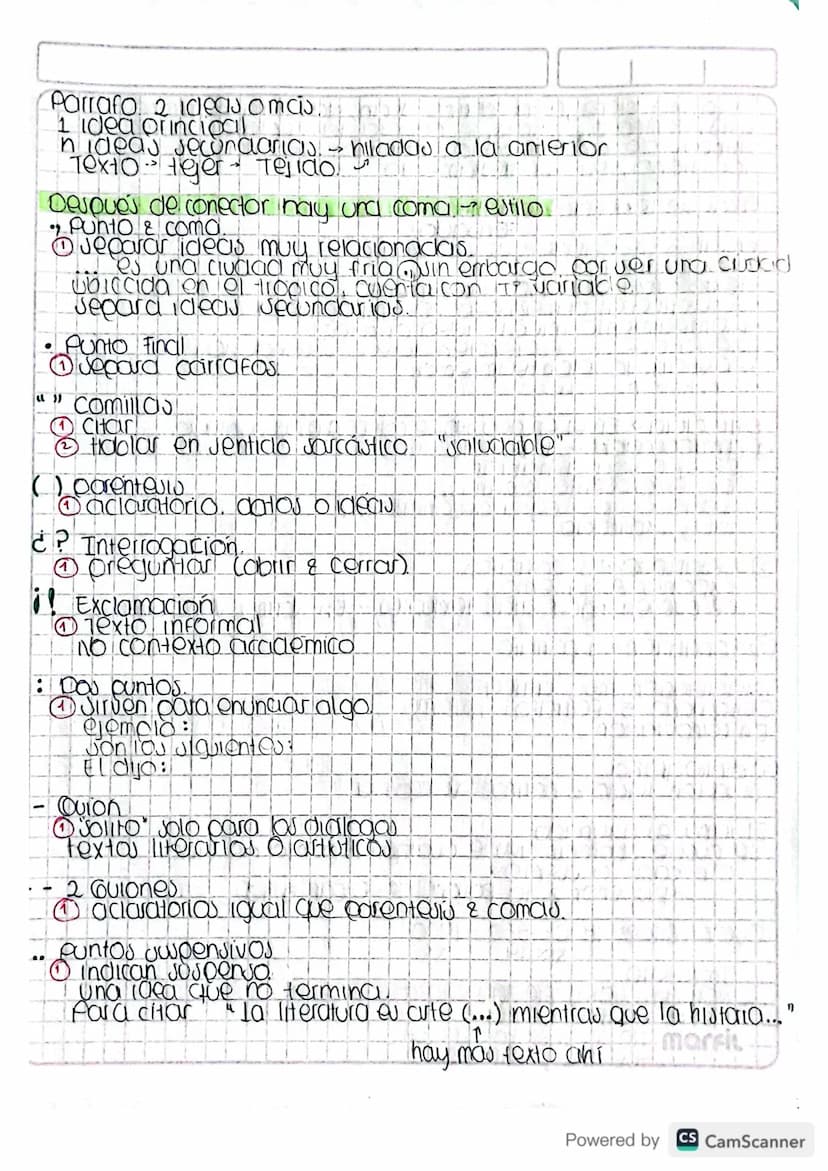 Parrafo 2 ideas o más.
1 idea principal
n ideas secundarias → hiladas a la anterior
Texto → tejer → Tejido.
Después de conector hay una coma → estilo.
; Punto & coma.
① separar ideas muy relacionadas.
... es una ciudad muy fria; sin embargo, por ser una ciudad
ubiccida en el trópico, cuenta con T° variable
separa ideas secundarias.
• Punto Final
① separa párrafos.
“ ” Comillas
① Citar
② Hablar en sentido sarcástico "saludable"
( ) parentesis
① aclaratorio. datos o ideas
¿? Interrogación.
① preguntar (abrir & cerrar)
¡! Exclamación
① Texto informal
No contexto académico
: Dos puntos.
① sirven para enunciar algo.
ejemplo:
son los siguientes:
El dijo:
- Guion
① "solito" solo para los dialogos
textos literarios o artísticos
- - 2 Guiones
① aclaratorios igual que parentesis & comas.
... puntos suspensivos
① indican suspenso
una idea que no termina.
Para citar " la literatura es arte (...) mientras que la historia..."
↑
hay más texto ahí
marfil
Powered by CS CamScanner